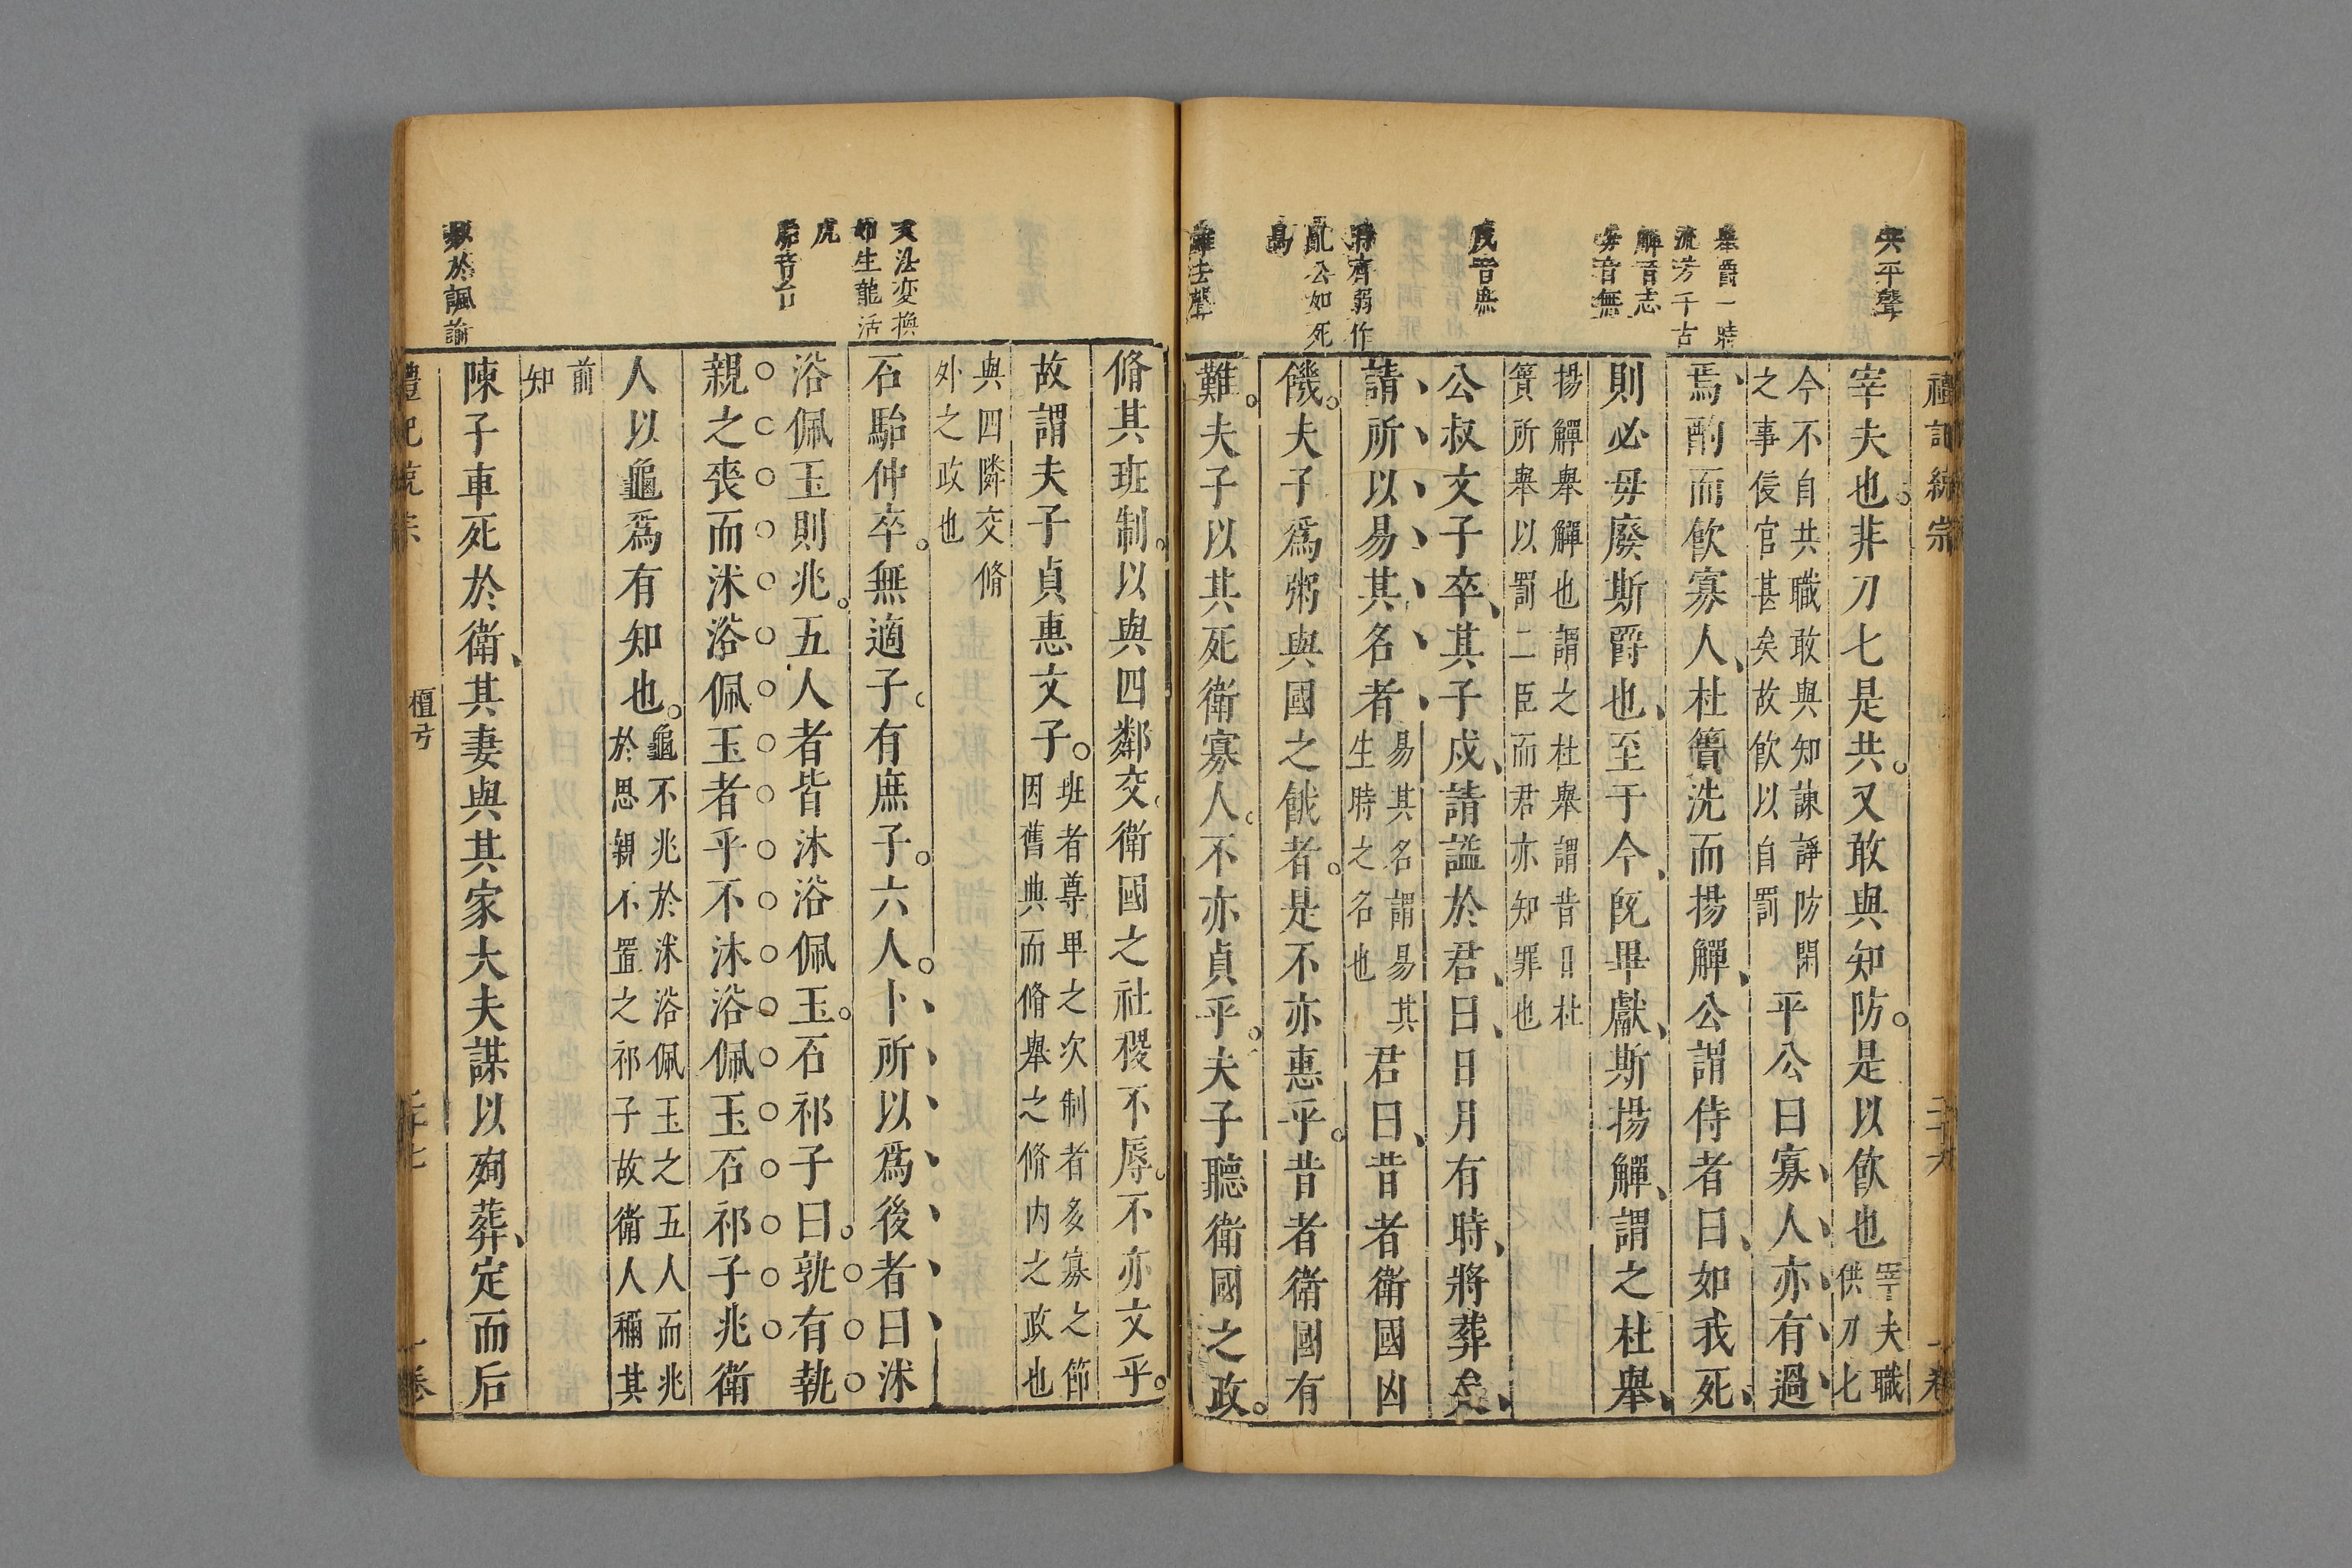 禮記統宗
二十六
一卷
共平聲
宰夫也非刀匕是共又敢與知防是以飲也宰夫職供刀匕
今不自共職敢與知諫諍防閑之事侵官甚矣故飲以自罰平公曰寡人亦有過
舉爵一時
流芳千古
焉酌而飲寡人杜簣洗而揚觶公謂侍者曰如我死
觶音志
毋音無
則必毋廢斯爵也至于今旣畢獻斯揚觶謂之杜舉
揚觶舉觶也謂之杜舉謂昔日杜簣所舉以罰二臣而君亦知罪也
戍音恕
公叔文子卒其子戍請謚於君曰日月有時將葬矣
請所以易其名者易其名謂易其生時之名也君曰昔者衛國凶
饑夫子爲粥與國之餓者是不亦惠乎昔者衛國有
難去聲
難夫子以其死衛寡人不亦貞乎夫子聽衛國之政
脩其班制以與四鄰交衛國之社稷不辱不亦文乎
故謂夫子貞惠文子班者尊卑之次制者多寡之節因舊典而脩舉之脩內之政也
與四隣交脩外之政也
文法変換
如生龍活
虎
石駘仲卒無適子有庶子六人卜所以爲後者曰沐
駘音台
浴佩玉則兆五人者皆沐浴佩玉石祁子曰孰有執
親之喪而沐浴佩玉者乎不沐浴佩玉石祁子兆衛
人以龜爲有知也龜不兆於沐浴佩玉之五人而兆於思親不置之祁子故衛人稱其
前知
敏於諷諭
陳子車死於衛其妻與其家大夫謀以殉葬定而后
禮記統宗
檀弓
二十七
一卷